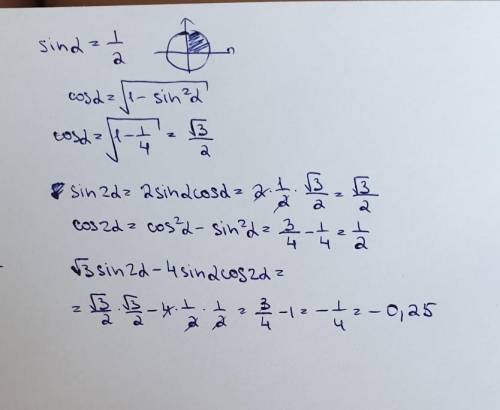 sinα = 1/2
cosα = √(1 - sin²α)
cosα = √(1 - 1/4) = √3/2
sin2α = 2sinαcosα = 2 · 1/2 · √3/2 = √3/2
cos2α = cos²α - sin²α = 3/4 - 1/4 = 1/2
√3 sin2α - 4sinαcos2α =
= √3/2 · √3/2 - 4 · 1/2 · 1/2 = 3/4 - 1 = - 1/4 = - 0,25